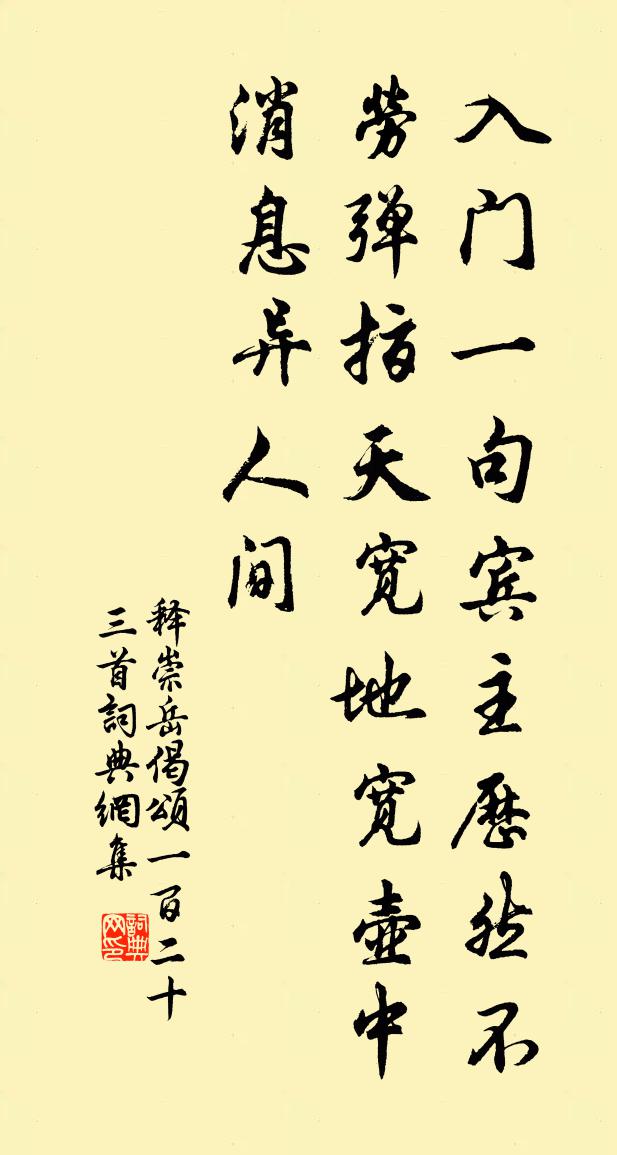 入门一句宾主历然不
劳弹指天宽地宽壶中
消息异人间
释崇岳偈颂一百二十
三首词典网集
词典网印